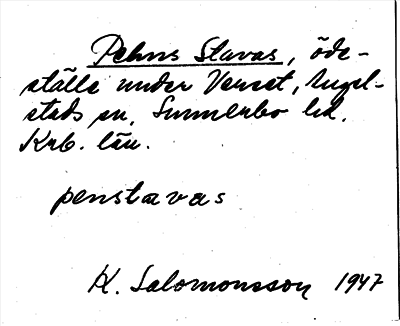 Pehns Slavas, öde-
ställe under Verset, Angel-
stads sn, Sunnerbo hd.
Krb. län.
penstavas
K. Salomonsson 1947